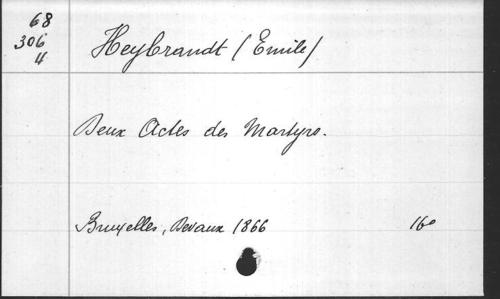 68
306
4
Heybrandt (Emile)
Deux Actes des Martyrs.
Bruxelles, Devaux 1866 16º